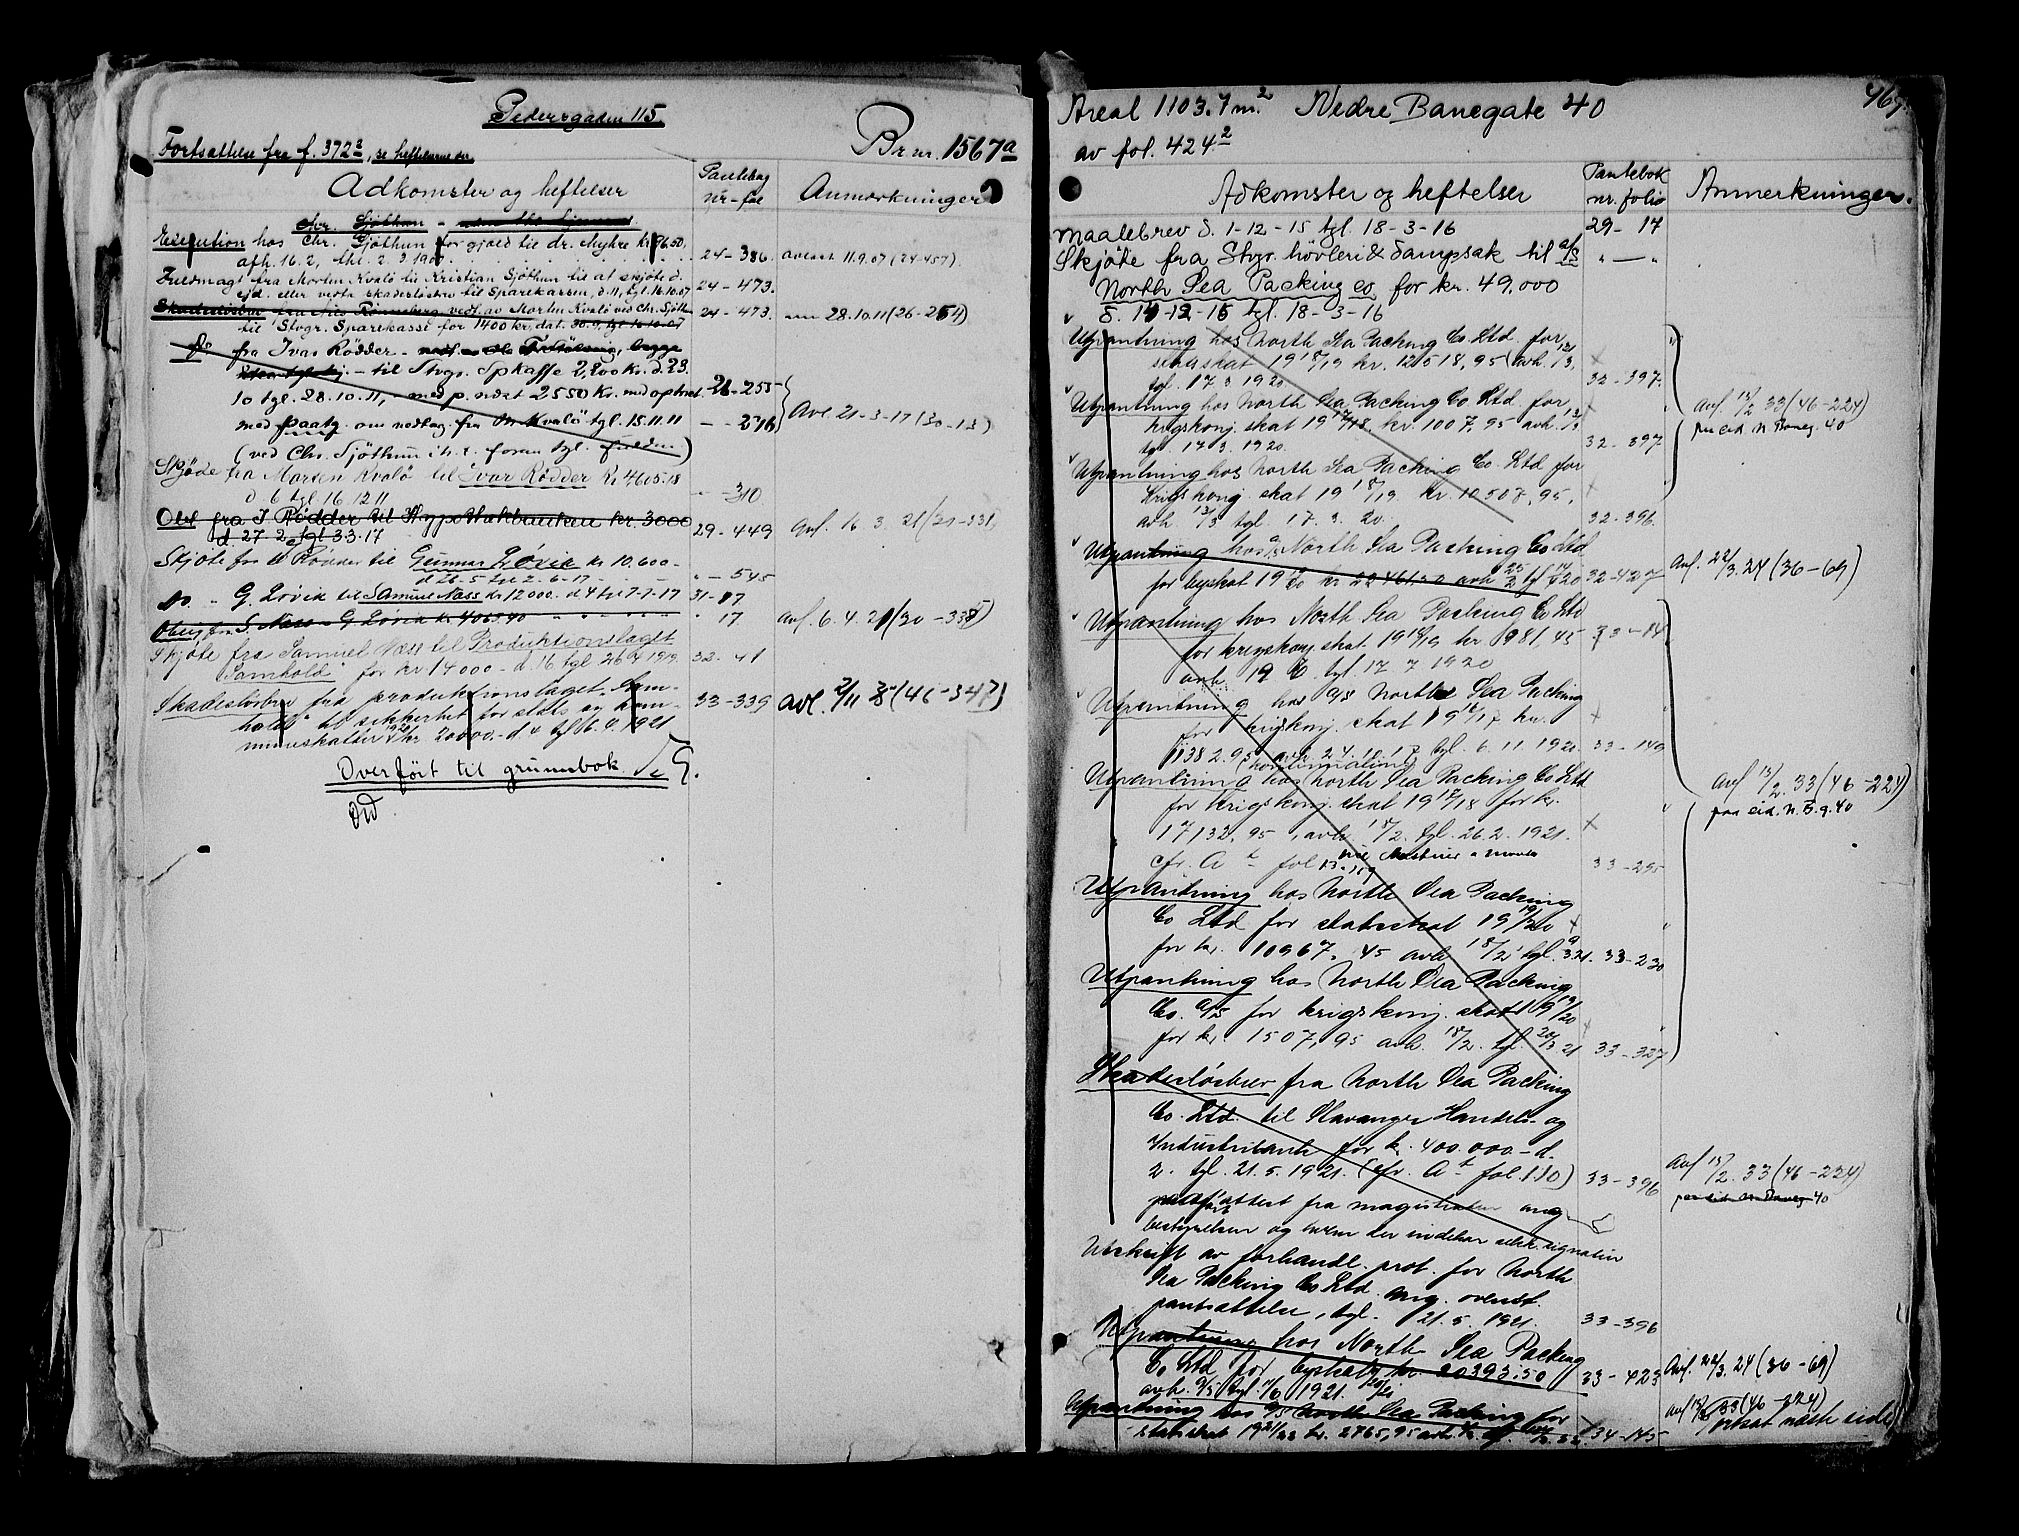 Pedersgaden 115
Fortsættelse fra f. 372², se heftelserne der.
Br. nr. 1567a
Adkomster og heftelser
Pantebog nr - fol
Anmærkninger
Execution hos Chr. Sjøthun for gjæld til dr. Myhre kr 96.50,
afh. 16.2, 24-386. avlæst 11.9.07 (24-457).
Fuldmagt fra Morten Kvalø til Kristian Sjøthun til at skjøte d.
eid. eller vedta skadesløsbrev til Sparekassen, d. 11, tgl. 16.10.07 24-473.
Skadesløsbrev fra Nils Rønneberg vedt. av Morten Kvalø ved Chr. Sjøth-
til Stvgr. Sparekasse for 1400 kr, dat. 30.9, tgl. 16.10.07 24-473. 28.10.11 (26-254)
Do fra Ivar Rødder
- til Stvgr. Spkasse 2,200 Kr. d. 23.
10 tgl. 28.10.11, med p. ret 2550 Kr. med optrin 26-255
med paateg. om vedtag. fra M. Kvalø tgl. 15.11.11 - - 276 Avl. 21-3-17 (30-13)
(ved Chr. Sjøthun i h. t. foran tgl. fuldm.)
Skjøde fra Morten Kvalø til Ivar Rødder Kr 4605.18
d. 6 tgl 16 12 11 - - 310
Obl fra I. Rødder til Hypothekbanken kr. 3000
d. 27. 2. tgl 3.3.17 29-449 Avl. 16. 3. 21
Skjøte fra Rødder til Gunnar Løvik kr 10,600.-
d 26. 5 tgl 2. 6-17 " - 545
do. " G. Løvik til Samuel Næss kr 12000.- d 4 tgl 7-7-17 31-17
Oblig. fra S. Næss - G. Løvik kr 4065.40 " 17 Avl. 6. 4. 21 (30-338)
Skjøte fra Samuel Næss til Produktionslaget
"Samhold" for kr. 14000 - d. 16 tgl 26 4 1919. 32-41
Skadesløsbrev fra produktionslaget "Sam-
hold" til sikkerhet for stats og kom-
muneskatter kr 20000.- d 4 tgl 16.4.1921 33-339 Avl. 2/11 35 (46-347)
Overført til grunnbok.
469.
Areal 1103.7 m.² Nedre Banegate 40
av fol. 424²
Adkomster og heftelser
Pantebok nr. folio
Anmerkninger.
Maalebrev d. 1-12-15 tgl. 18-3-16 29-17
Skjøte fra Stvgr. høvleri & dampsak til a/s " — "
North Sea Packing co. for kr. 49,000
d. 14-12-15 tgl. 18-3-16
Utpantning hos North Sea Packing Co. Ltd. for
statsskat 19 18/19 kr. 12518,95 (avh. 13/3,
tgl. 17. 3 1920. 32-397.
Utpantning hos North Sea Packing Co Ltd. for
krigskonj. skat 19 17/18, kr. 1007,95 avh. 13/3
tgl. 17. 3. 1920. 32-397
Avl. 13/2 33 (46-224)
paa eid. N Baneg. 40
Utpantning hos North Sea Packing Co. Ltd for
krigskonj. skat 19 18/19 kr. 10507,95,
avh. 13/3 tgl. 17. 3. 20. 32-396.
Utpantning hos a/s North Sea Packing Co Ltd
for byskat kr 20461.20 avh 25/2 32-427 Avl. 22/3.24 (36-69)
Utpantning hos North Sea Packing Co Ltd
for krigskonj. skat 19 18/19 kr. 981,45 33-14
avh. 19 6. tgl. 17 7 1920
Utpantning hos a/s North Sea Packing
for krigskonj. skat 19 16/17 kr.
1382.95 avh. 24.10. tgl. 6. 11. 1920. 33-140
Utpantning hos North Sea Packing Co Ltd
for krigskonj. skat 19 17/18 for kr.
17132,95, avh. 18/2. tgl. 26. 2. 1921.
33-295
Avl 13/2. 33 (46-224)
paa eid. N. B. g. 40
Utpantning hos North Sea Packing
Co Ltd for statsskat 19 19/20
for kr. 10967,45 avh 18/2 tgl. 9/3 21. 33-230
Utpantning hos North Sea Packing
Co. a/s for krigskonj. skat 19 19/20
for kr. 1507,95 avh. 18/2. tgl. 20/3 21 33-327
Skadesløsbrev fra North Sea Packing
Co. Ltd. til Stavanger Handels- og
Industribank for kr. 400.000.- d.
2. tgl. 21. 5. 1921. (cfr. A fol. 110) 33-396
Avl 13/2. 33 (46-224)
paa eid. N. Baneg 40
attest fra magistraten ang
bestyrelsen og hvem der indehar selsk. signatur
Utskrift av forhandl. prot. for North
Sea Packing Co Ltd. ang. ovenst.
pantsættelse, tgl. 21. 5. 1921. 33-396
Utpantning hos North Sea Packing
Co Ltd for byskat kr 20393.50 33-423 Avl. 22/3. 24 (36-69)
avh. 9/5 tgl. 1921.
Utpantning hos a/s North Sea Packing for
statsskat 19 21/22 kr. 2765,95 34-145
Avl 13/2 33 (46-224)
fortsat næste side